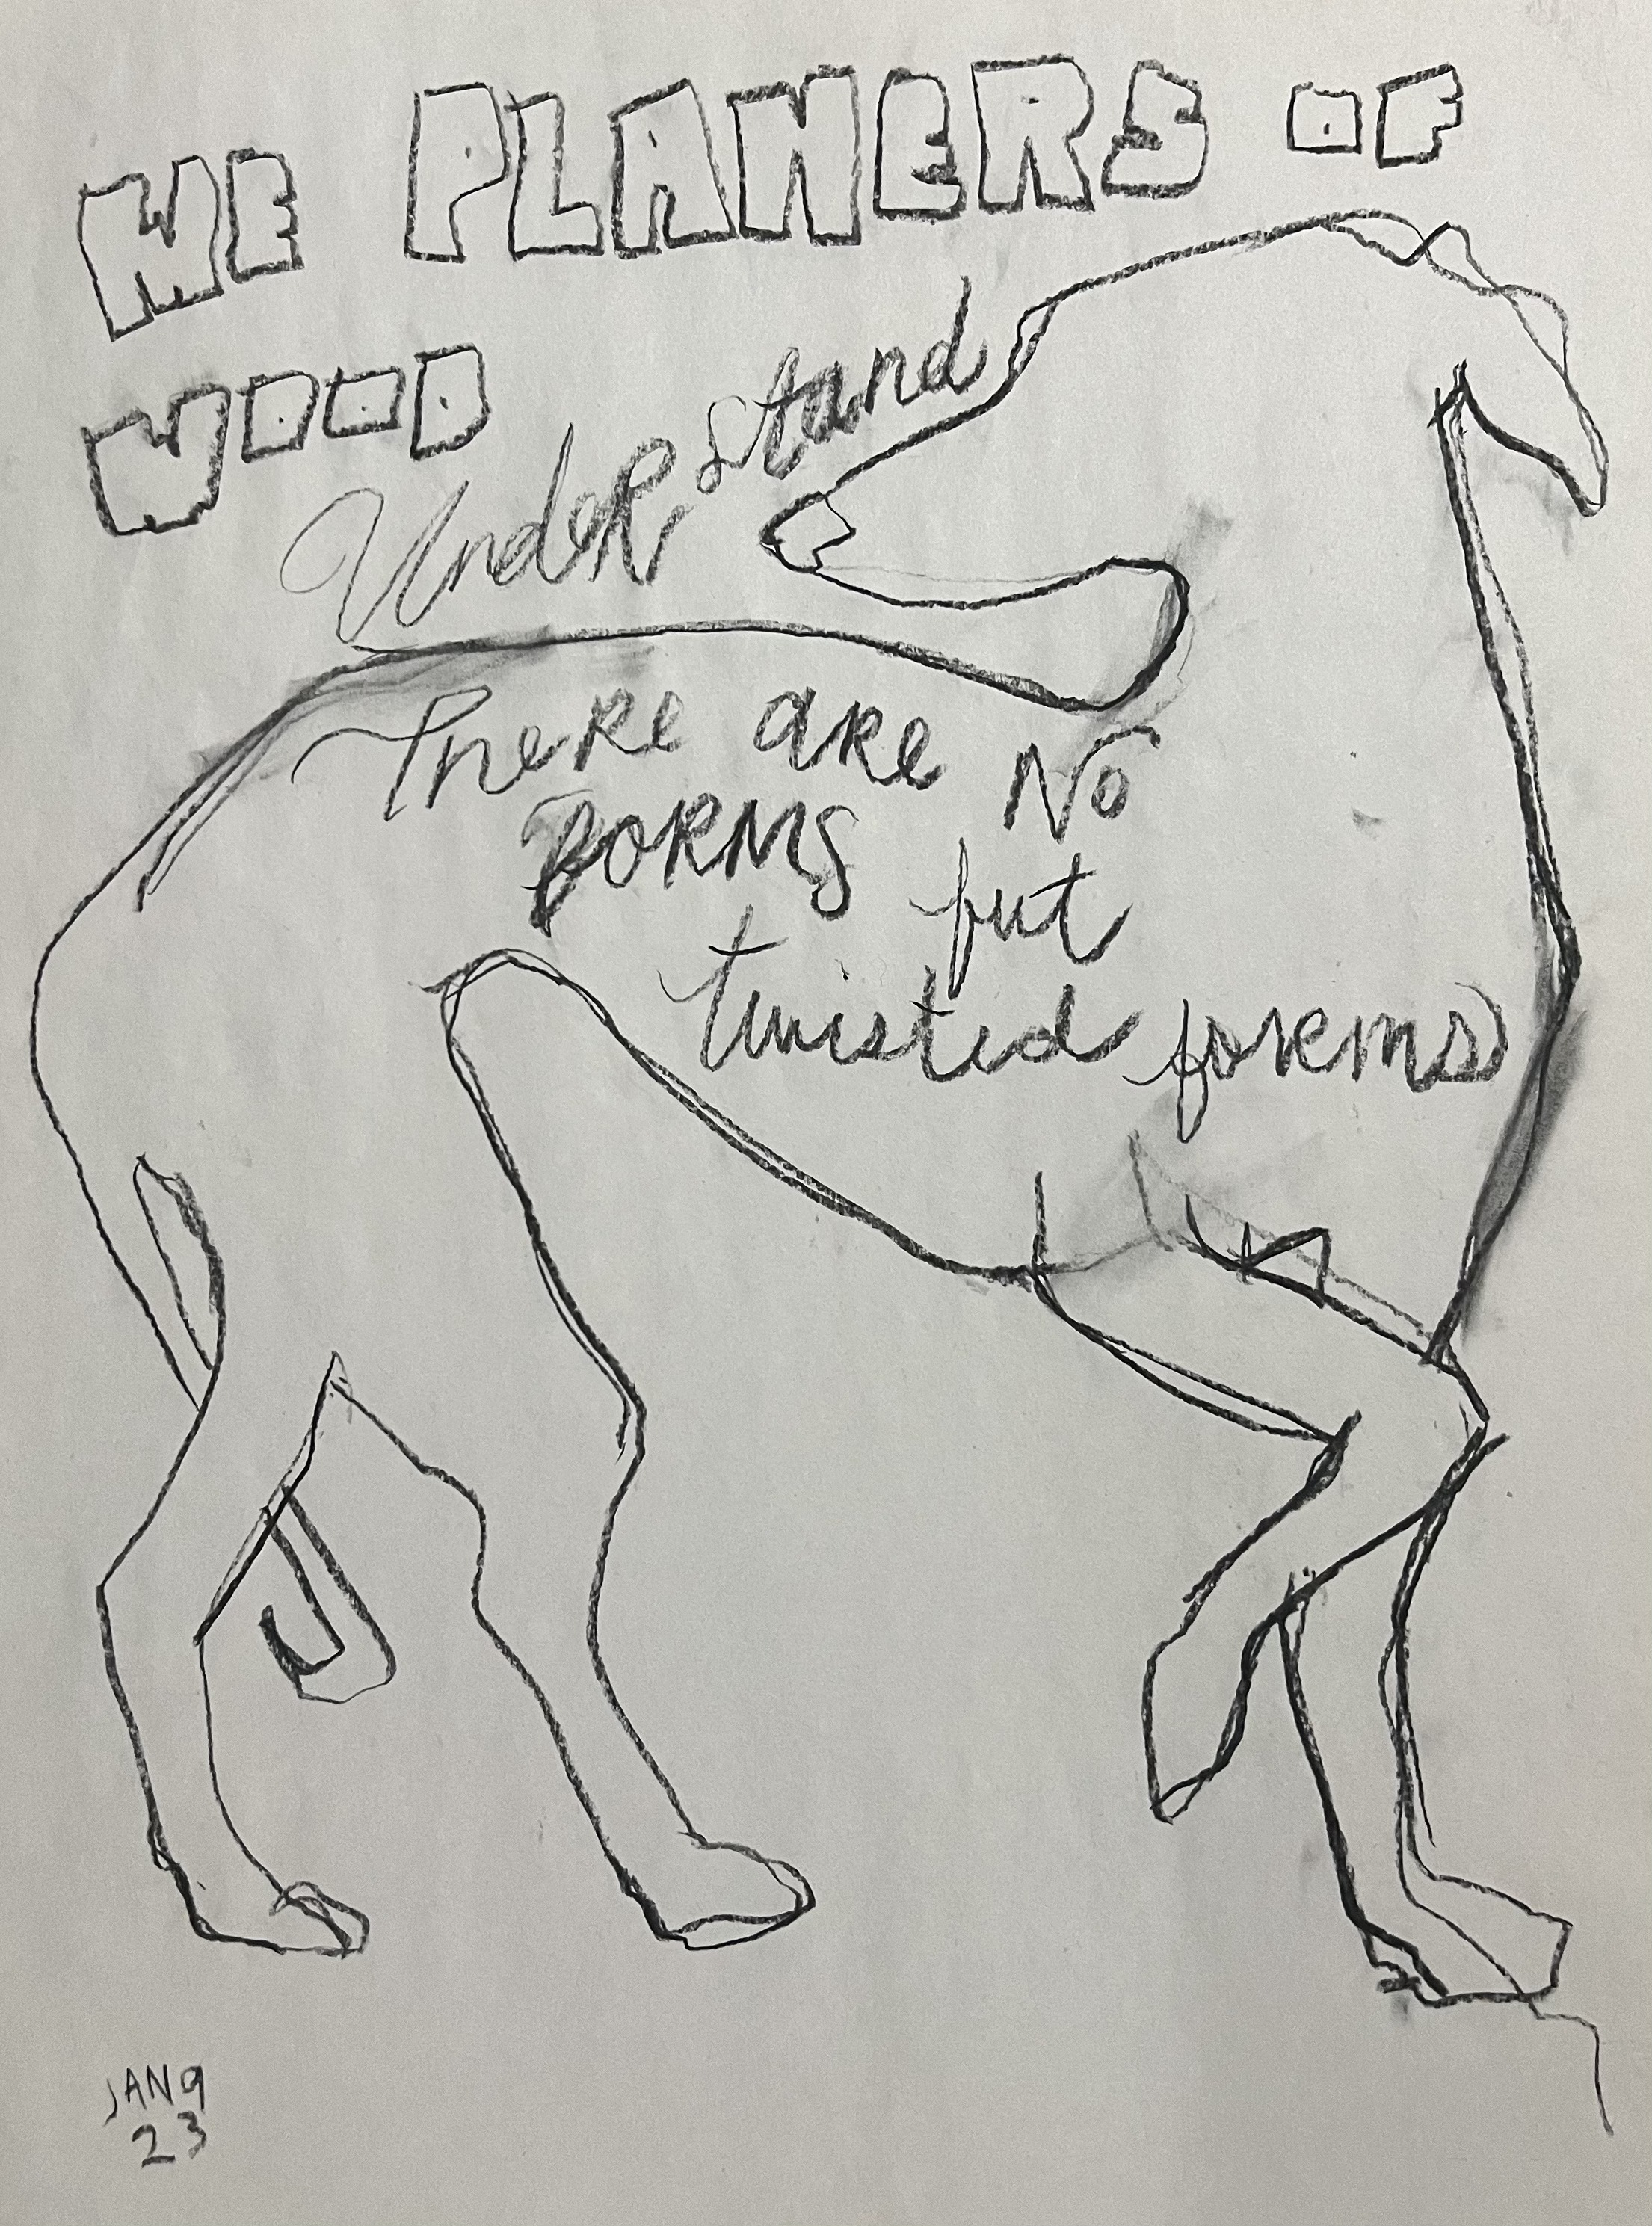 WE PLANERS OF
WOOD
Understand
There are No
FORMS but
twisted forms
JAN 9
23